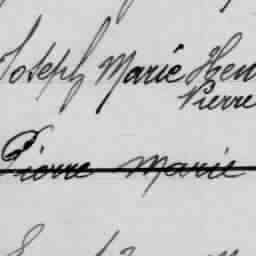 Joseph Marie Hen
Pierre
Pierre Marie